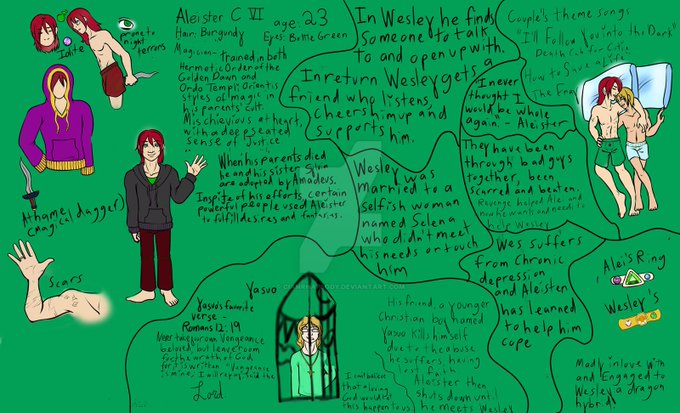 Aleister C VI age: 23
Hair: Burgundy Eyes: Bottle Green
Iolite
prone to
night
terrors
Magician-
trained in both
Hermetic Order of the
Golden Dawn and
Ordo Templi Orientis
styles of magic in
his parents' cult.
Mischievious at heart,
with a deep seated
sense of Justice
When his parents died
he and his sister Sylvia
are adopted by Amadeus.
Inspite of his efforts, certain
powerful people used Aleister
to fulfill desires and fantasies.
Athame
(magical dagger)
Scars
In Wesley he finds
someone to talk
to and open up with.
In return Wesley gets a
friend who listens,
cheers him up and
supports him.
Wesley
was
married to a
selfish woman
named Selena
who didn't meet
his needs or touch
him
Couple's theme songs
"I'll Follow You into the Dark"
Death Cab for Cutie
How to Save a Life
The Fray
"I never
thought I
would be whole
again." - Aleister
They have been
through bad guys
together, been
scarred and beaten.
Revenge helped Alei and
now he wants and needs to
help Wesley
Wes suffers
from Chronic
depression
and Aleister
has learned
to help him
cope
Alei's Ring
Wesley's
Madly in love with
and Engaged to
Wesley a dragon
hybrid
Yasuo
Yasuo's favorite
verse -
Romans 12:19
Never take your own Vengeance
beloved, but leave room
for the wrath of God
for it is written "Vengeance
is mine, I will repay," said the
Lord.
I can't believe
that a loving
God would let
this happen to us
His friend, a younger
Christian boy named
Yasuo kills himself
due to the abuse
he suffers, having
lost faith
Aleister then
shuts down until
he meets Wesley